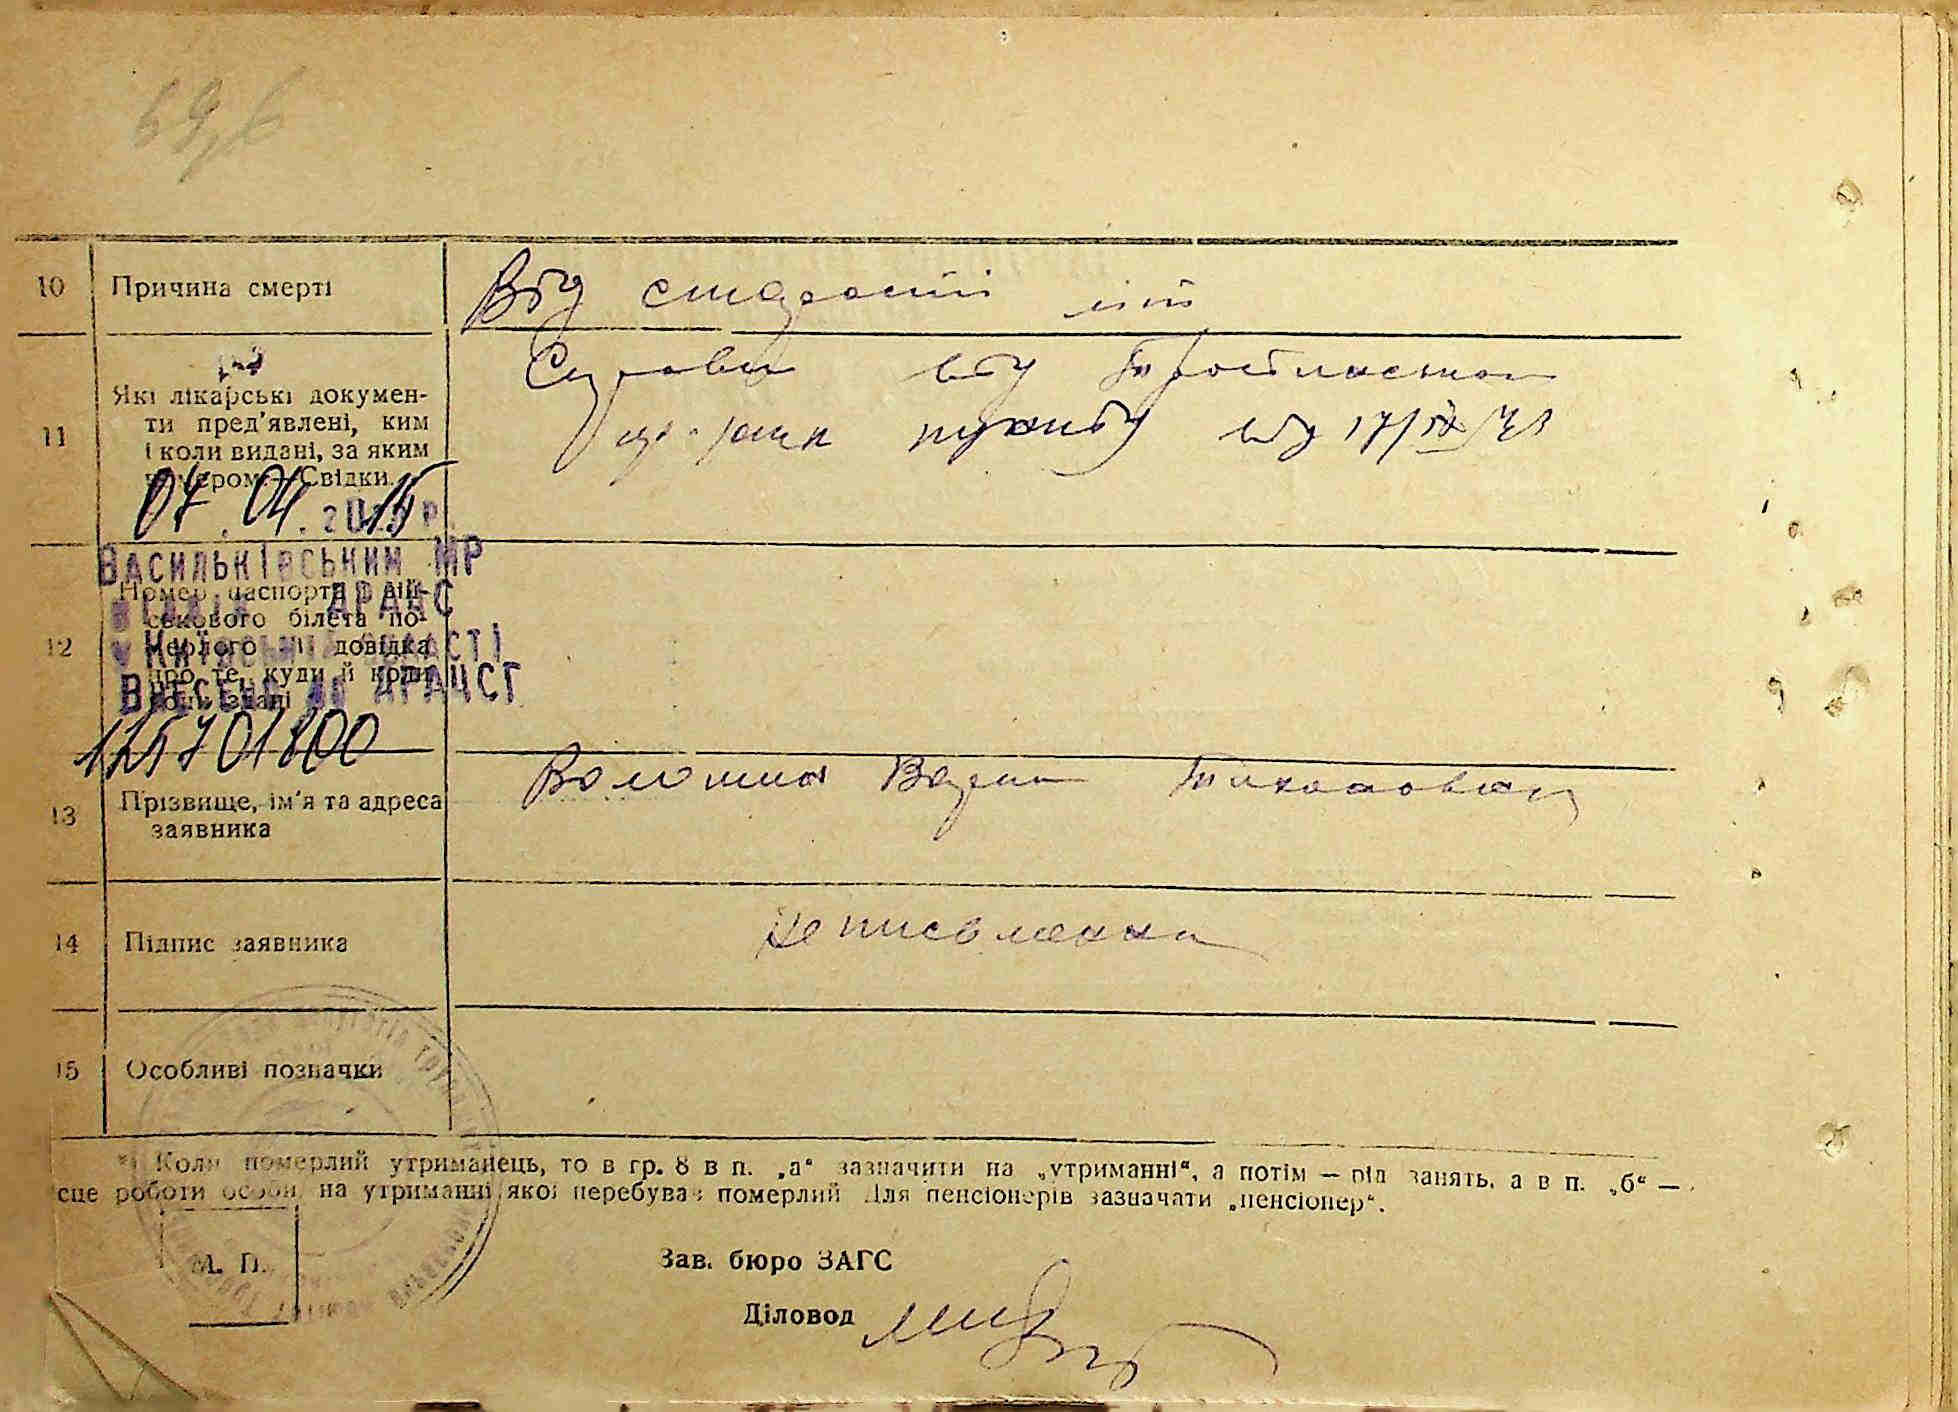 10 Причина смерті Від старості літ
11 Які лікарські докумен-
ти пред'явлені, ким
і коли видані, за яким
номером. Свідки.
Справка від
пункту від 17/IX
07.04.2015 Р.
ВАСИЛЬКІВСЬКИМ МР
АРАЦС
КИЇВСЬКІЙ ОБЛАСТІ
ВНЕСЕНО ДО ДРАЦСГ
125701800
12 Номер паспорта і вій-
ськового білета по-
мерлого чи довідка
про те, куди й коли
вони здані
13 Прізвище, ім'я та адреса
заявника
Волошина
14 Підпис заявника неписьменна
15 Особливі позначки
*) Коли померлий утриманець, то в гр. 8 в п. „а“ зазначити на „утриманні“, а потім — рід занять, а в п. „б“ —
сце роботи особи, на утриманні якої перебував померлий Для пенсіонерів зазначати „пенсіонер“.
М. П.
Зав. бюро ЗАГС
Діловод